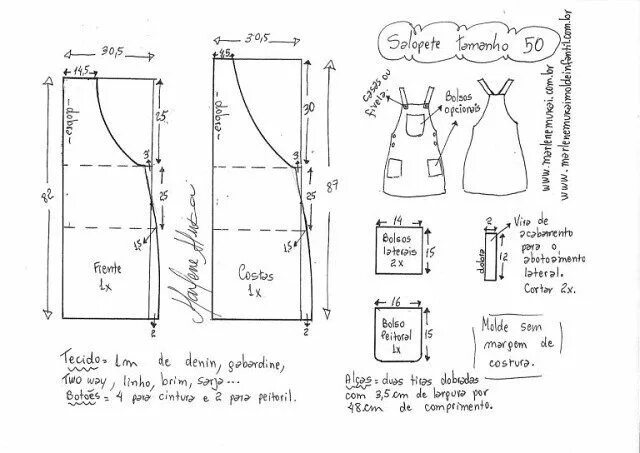 Salopete tamanho 50
30,5
14,5
dobra
25
82
3
25
1,5
Frente
1x
2
30,5
8,5
dobra
30
87
3
25
1,5
Costas
1x
2
Marlene Mukai
casas ou
fivela
Bolsos
opcionais
www.marlenemukai.com.br
www.marlenemukaimoldeinfantil.com.br
14
Bolsos
laterais
2x
15
2
dobra
12
Vira de
acabamento
para o
abotoamento
lateral.
Cortar 2x.
16
Bolso
Peitoral
1x
15
Molde sem
margem de
costura.
Tecido = 1m de denin, gabardine,
Two way, linho, brim, sarja...
Botões = 4 para cintura e 2 para peitoril.
Alças = duas tiras dobradas
com 3,5cm de largura por
48cm de comprimento.